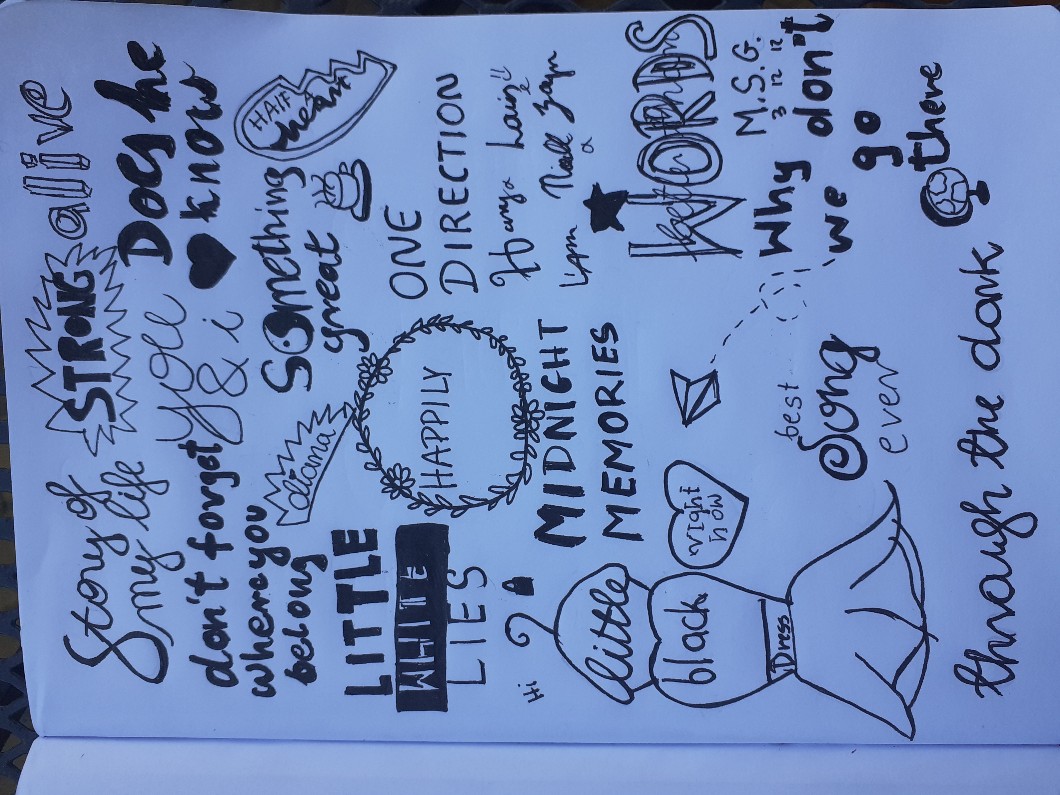 Story of
my life
STRONG
alive
don't forget
where you
belong
You
& i
Does he
know
diana
Something
great
HALF
A
heart
LITTLE
WHITE
LIES
HAPPILY
ONE
DIRECTION
Harry Louis
Liam Niall & Zayn
Hi
MIDNIGHT
MEMORIES
little
black
Dress
right
now
Better than
WORDS
M.S.G.
best
Song
ever
Why don't
we go
there
through the dark